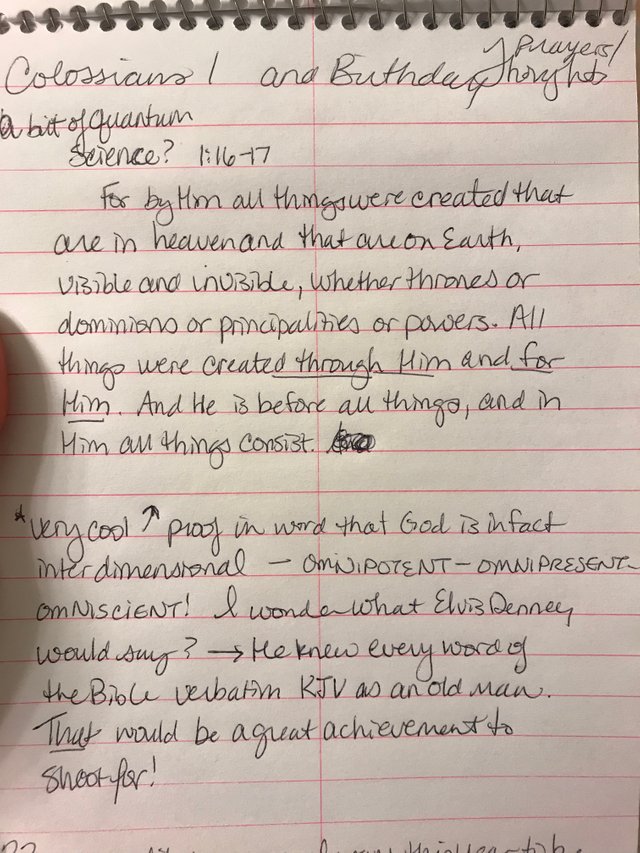 Colossians 1 and Birthday Prayers/
Thoughts
a bit of quantum
science? 1:16-17
For by Him all things were created that
are in heaven and that are on Earth,
visible and invisible, whether thrones or
dominions or principalities or powers. All
things were created through Him and for
Him. And He is before all things, and in
Him all things consist.
*very cool ↑ proof in word that God is infact
interdimensional - OMNIPOTENT - OMNIPRESENT-
OMNISCIENT! I wonder what Elvis Denney
would say? → He knew every word of
the Bible verbatim KJV as an old man.
That would be a great achievement to
shoot for!